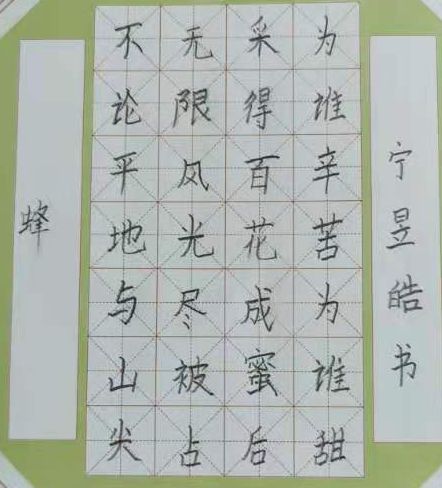 蜂
不论平地与山尖
无限风光尽被占
采得百花成蜜后
为谁辛苦为谁甜
宁昱皓书